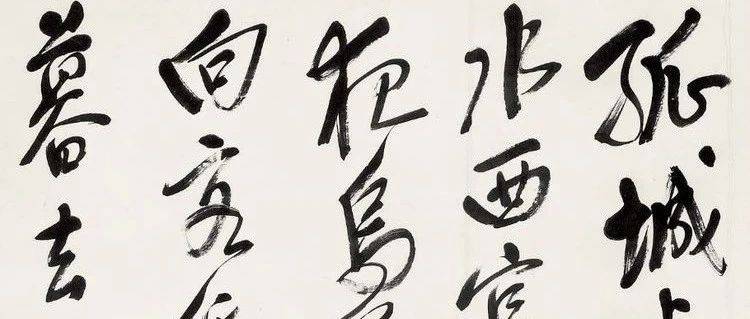 孤城上
水西官
夜烏
向客
暮去